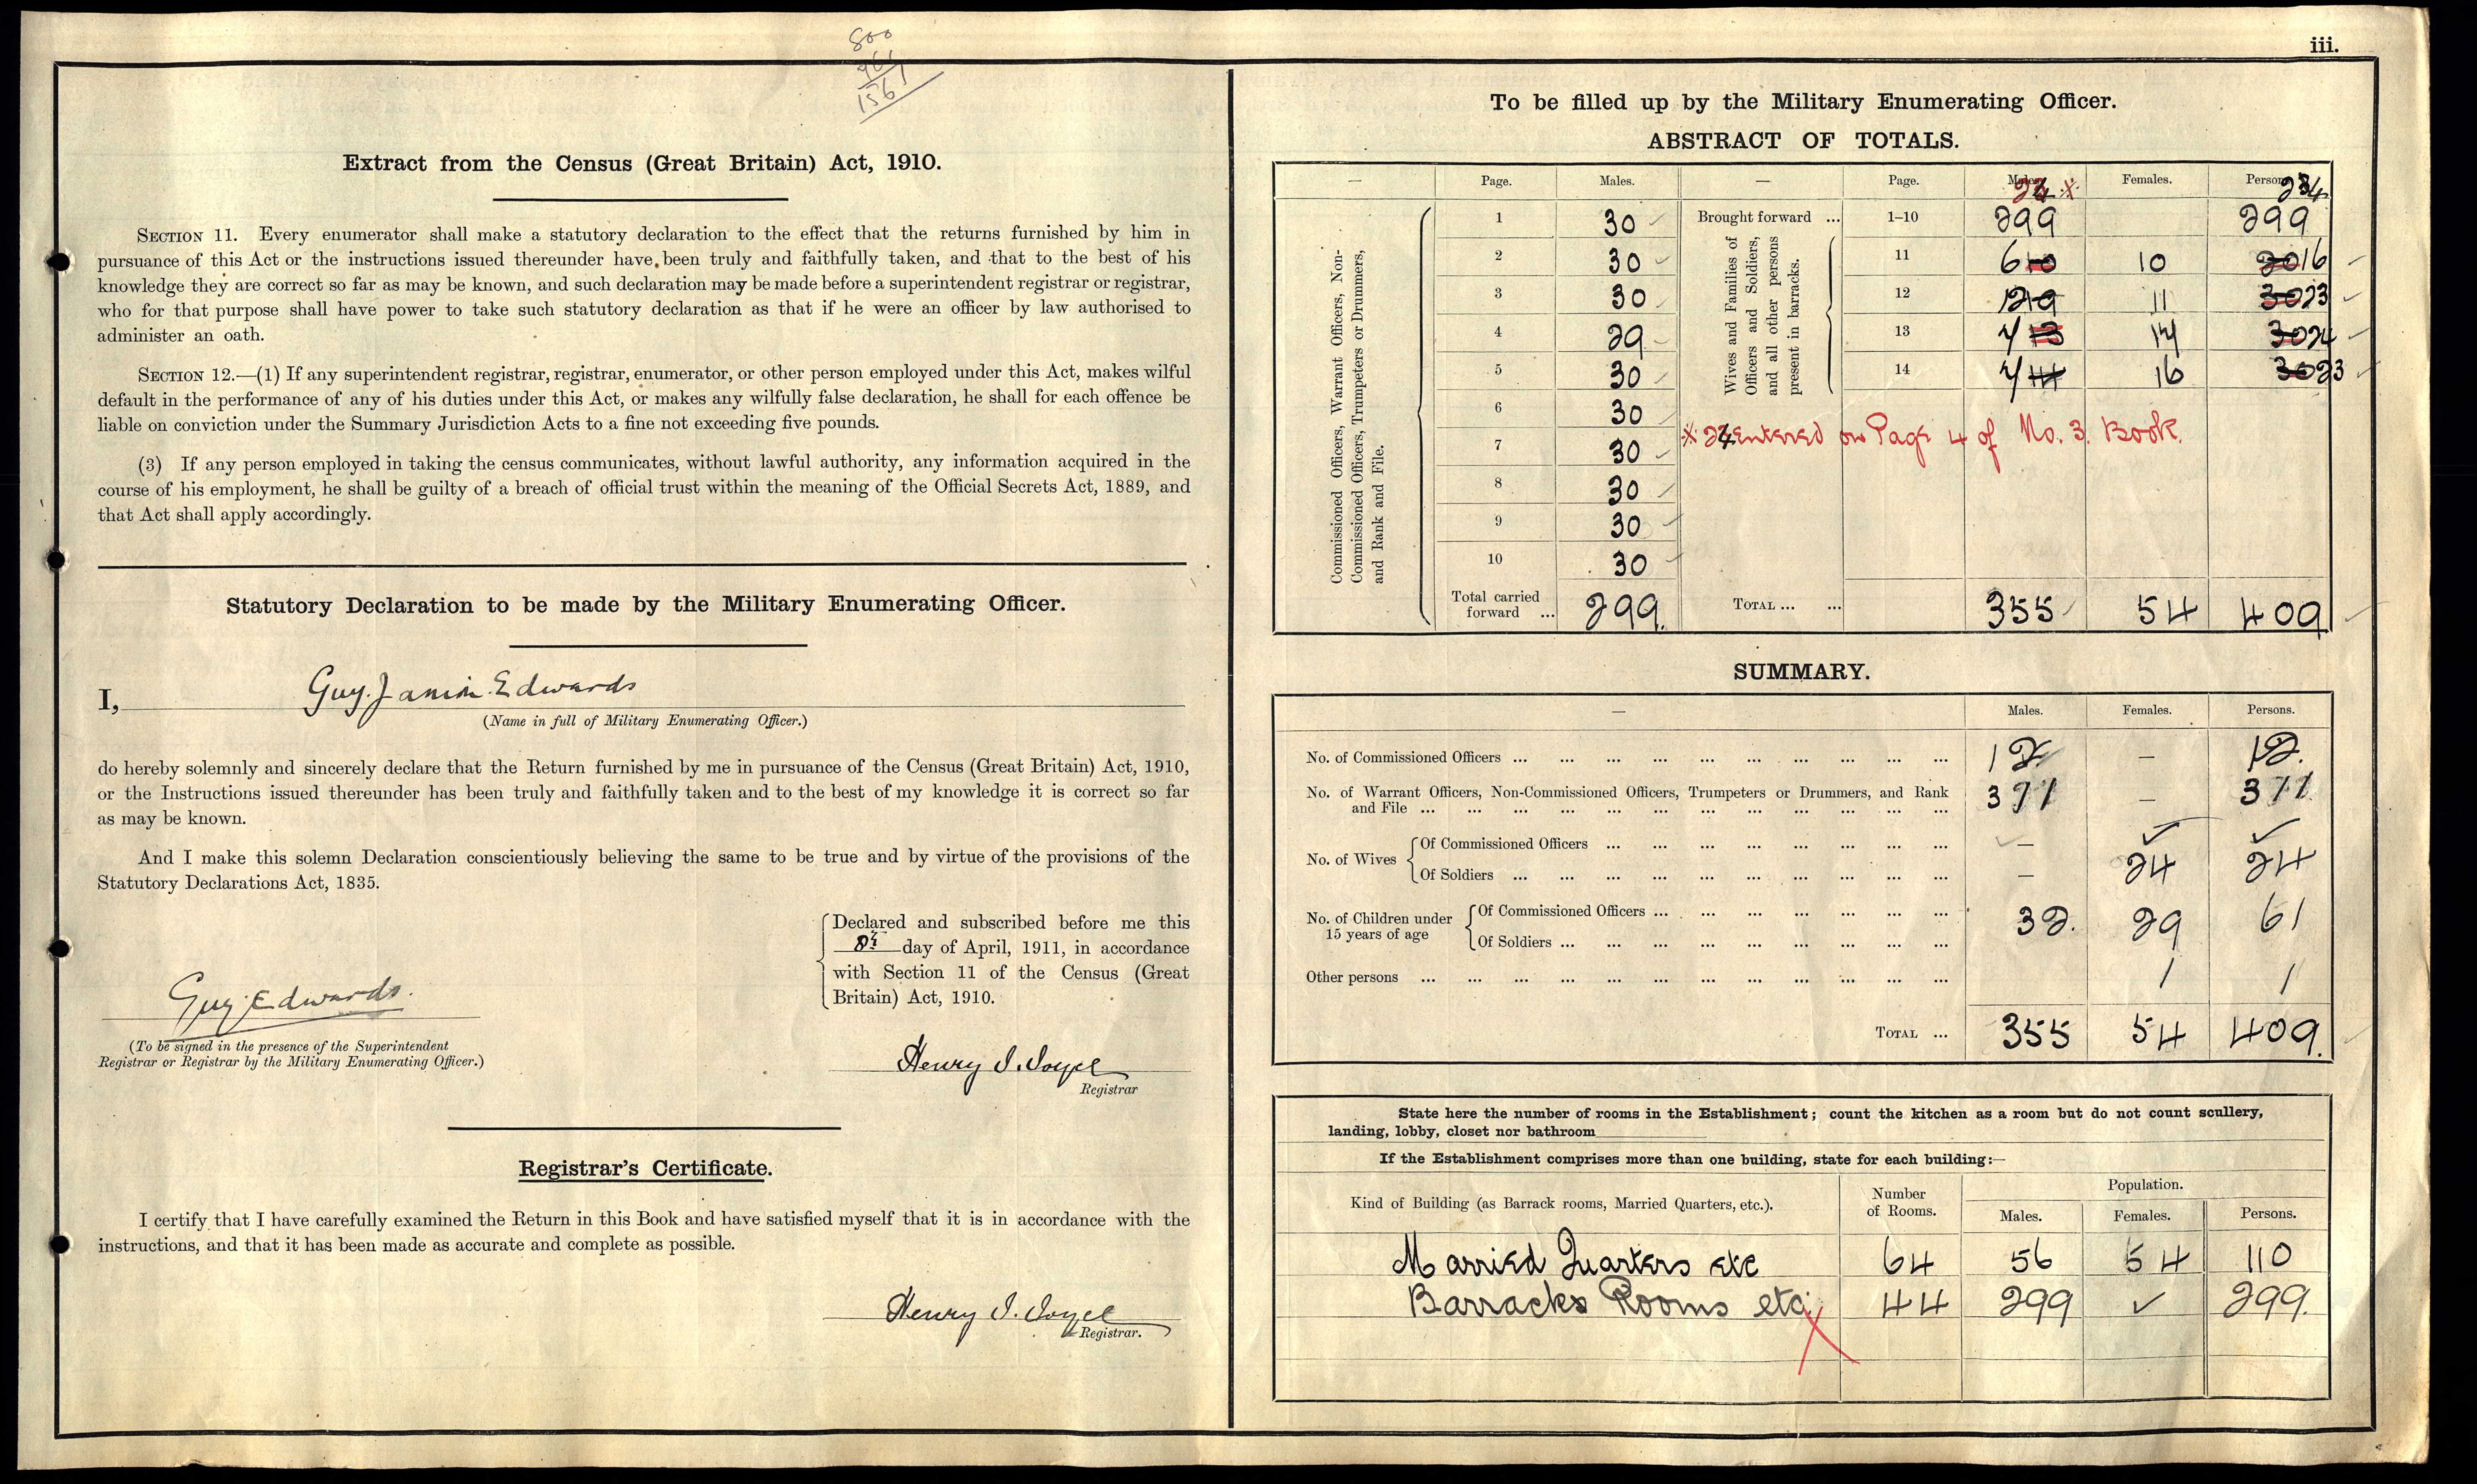 800
1561
iii.
Extract from the Census (Great Britain) Act, 1910.
SECTION 11. Every enumerator shall make a statutory declaration to the effect that the returns furnished by him in
pursuance of this Act or the instructions issued thereunder have been truly and faithfully taken, and that to the best of his
knowledge they are correct so far as may be known, and such declaration may be made before a superintendent registrar or registrar,
who for that purpose shall have power to take such statutory declaration as that if he were an officer by law authorised to
administer an oath.
SECTION 12.—(1) If any superintendent registrar, registrar, enumerator, or other person employed under this Act, makes wilful
default in the performance of any of his duties under this Act, or makes any wilfully false declaration, he shall for each offence be
liable on conviction under the Summary Jurisdiction Acts to a fine not exceeding five pounds.
(3) If any person employed in taking the census communicates, without lawful authority, any information acquired in the
course of his employment, he shall be guilty of a breach of official trust within the meaning of the Official Secrets Act, 1889, and
that Act shall apply accordingly.
Statutory Declaration to be made by the Military Enumerating Officer.
I, Guy Janion Edwards
(Name in full of Military Enumerating Officer.)
do hereby solemnly and sincerely declare that the Return furnished by me in pursuance of the Census (Great Britain) Act, 1910,
or the Instructions issued thereunder has been truly and faithfully taken and to the best of my knowledge it is correct so far
as may be known.
And I make this solemn Declaration conscientiously believing the same to be true and by virtue of the provisions of the
Statutory Declarations Act, 1835.
Declared and subscribed before me this
8th day of April, 1911, in accordance
with Section 11 of the Census (Great
Britain) Act, 1910.
Guy Edwards.
(To be signed in the presence of the Superintendent
Registrar or Registrar by the Military Enumerating Officer.)
Henry
Registrar
Registrar's Certificate.
I certify that I have carefully examined the Return in this Book and have satisfied myself that it is in accordance with the
instructions, and that it has been made as accurate and complete as possible.
Henry
Registrar.
To be filled up by the Military Enumerating Officer.
ABSTRACT OF TOTALS.
— Page. Males. — Page. Males. Females. Persons.
Commissioned Officers, Warrant Officers, Non-
Commissioned Officers, Trumpeters or Drummers,
and Rank and File.
1 30
2 30
3 30
4 29
5 30
6 30
7 30
8 30
9 30
10 30
Total carried
forward ... 299.
Brought forward ... 1–10 299 299
Wives and Families of
Officers and Soldiers,
and all other persons
present in barracks.
11 6 10 16
12 12 11 23
13 14 24
14 16 23
※ 24 entered on Page 4 of No. 3. Book.
TOTAL ... ... 355 54 409
SUMMARY.
— Males. Females. Persons.
No. of Commissioned Officers ... 12 — 12.
No. of Warrant Officers, Non-Commissioned Officers, Trumpeters or Drummers, and Rank
and File ... —
No. of Wives
Of Commissioned Officers ... —
Of Soldiers ... — 24 24
No. of Children under
15 years of age
Of Commissioned Officers ...
Of Soldiers ... 32. 29 61
Other persons ... 1 1
TOTAL ... 355 54 409.
State here the number of rooms in the Establishment; count the kitchen as a room but do not count scullery,
landing, lobby, closet nor bathroom
If the Establishment comprises more than one building, state for each building:—
Kind of Building (as Barrack rooms, Married Quarters, etc.). Number
of Rooms. Population.
Males. Females. Persons.
Married Quarters etc 64 56 54 110
Barracks Rooms etc. 44 299 299.